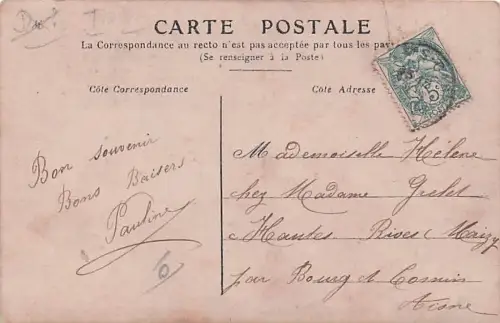 CARTE POSTALE
La Correspondance au recto n'est pas acceptée par tous les pays
(Se renseigner à la Poste)
Côté Correspondance
Côté Adresse
Bon souvenir
Bons Baisers
Pauline
Mademoiselle Hélène
chez Madame Grelet
Hautes Rives (Maizy
par Bourg et Comin
Aisne